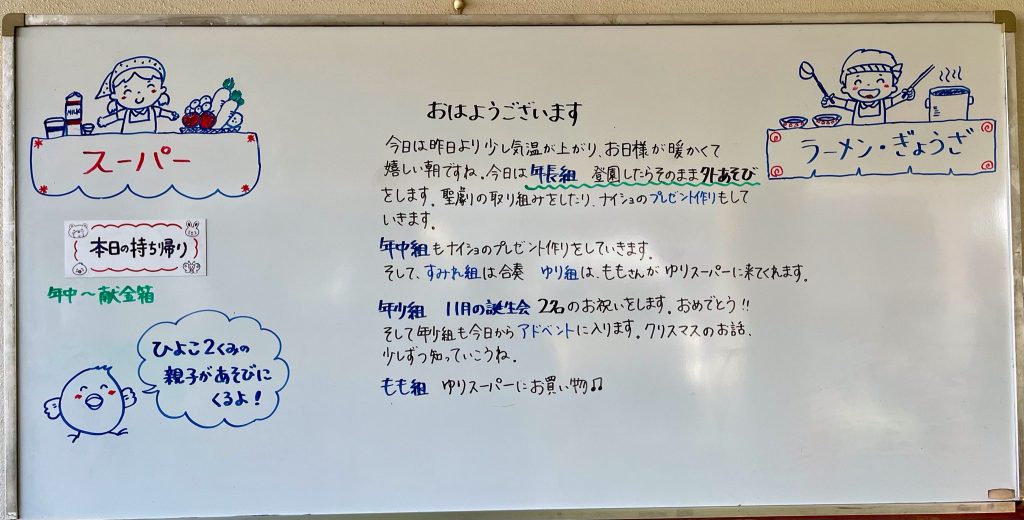 MILK
スーパー
本日の持ち帰り
年中～献金箱
ひよこ2くみの
親子があそびに
くるよ！
おはようございます
今日は昨日より少し気温が上がり、お日様が暖かくて
嬉しい朝ですね。今日は年長組 登園したらそのまま外あそび
をします。聖劇の取り組みをしたり、ナイショのプレゼント作りもして
いきます。
年中組もナイショのプレゼント作りをしていきます。
そして、すみれ組は合奏 ゆり組は、ももさんがゆりスーパーに来てくれます。
年少組 11月の誕生会 2名のお祝いをします。おめでとう!!
そして年少組も今日からアドベントに入ります。クリスマスのお話、
少しずつ知っていこうね。
もも組 ゆりスーパーにお買い物♫
ラーメン・ぎょうざ